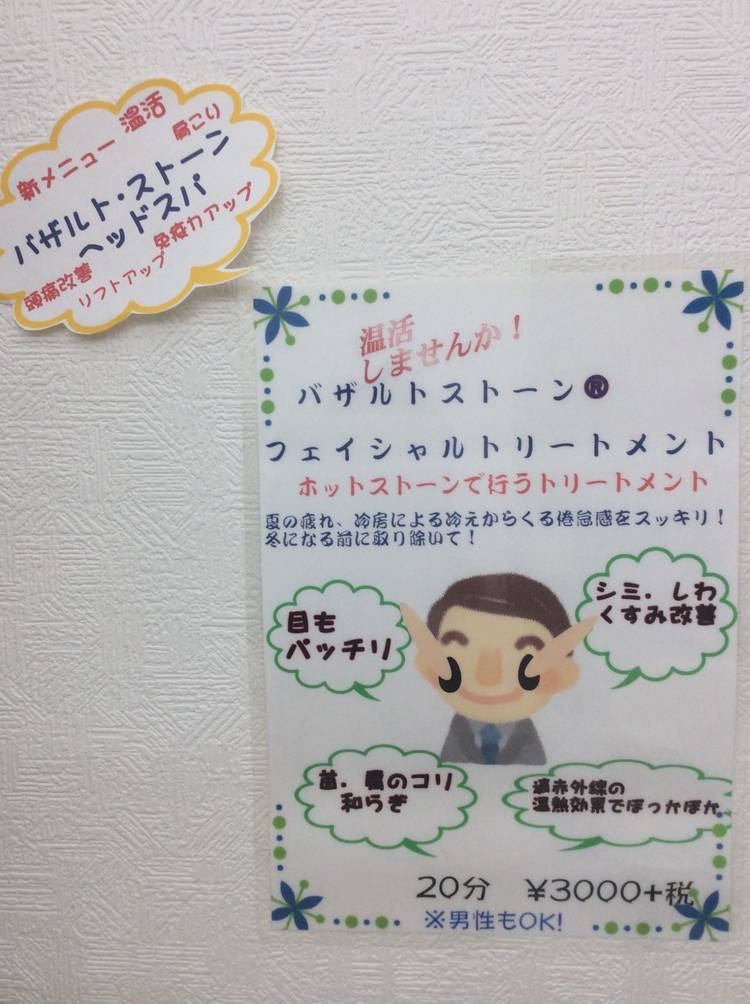 新メニュー 温活
肩こり
バザルト・ストーン
ヘッドスパ
免疫力アップ
頭痛改善
リフトアップ
温活
しませんか！
バザルトストーン®
フェイシャルトリートメント
ホットストーンで行うトリートメント
夏の疲れ、冷房による冷えからくる倦怠感をスッキリ！
冬になる前に取り除いて！
目も
パッチリ
シミ．しわ
くすみ改善
首．肩のコリ
和らぎ
遠赤外線の
温熱効果でぽっかぽか
20分 ¥3000+税
※男性もOK!